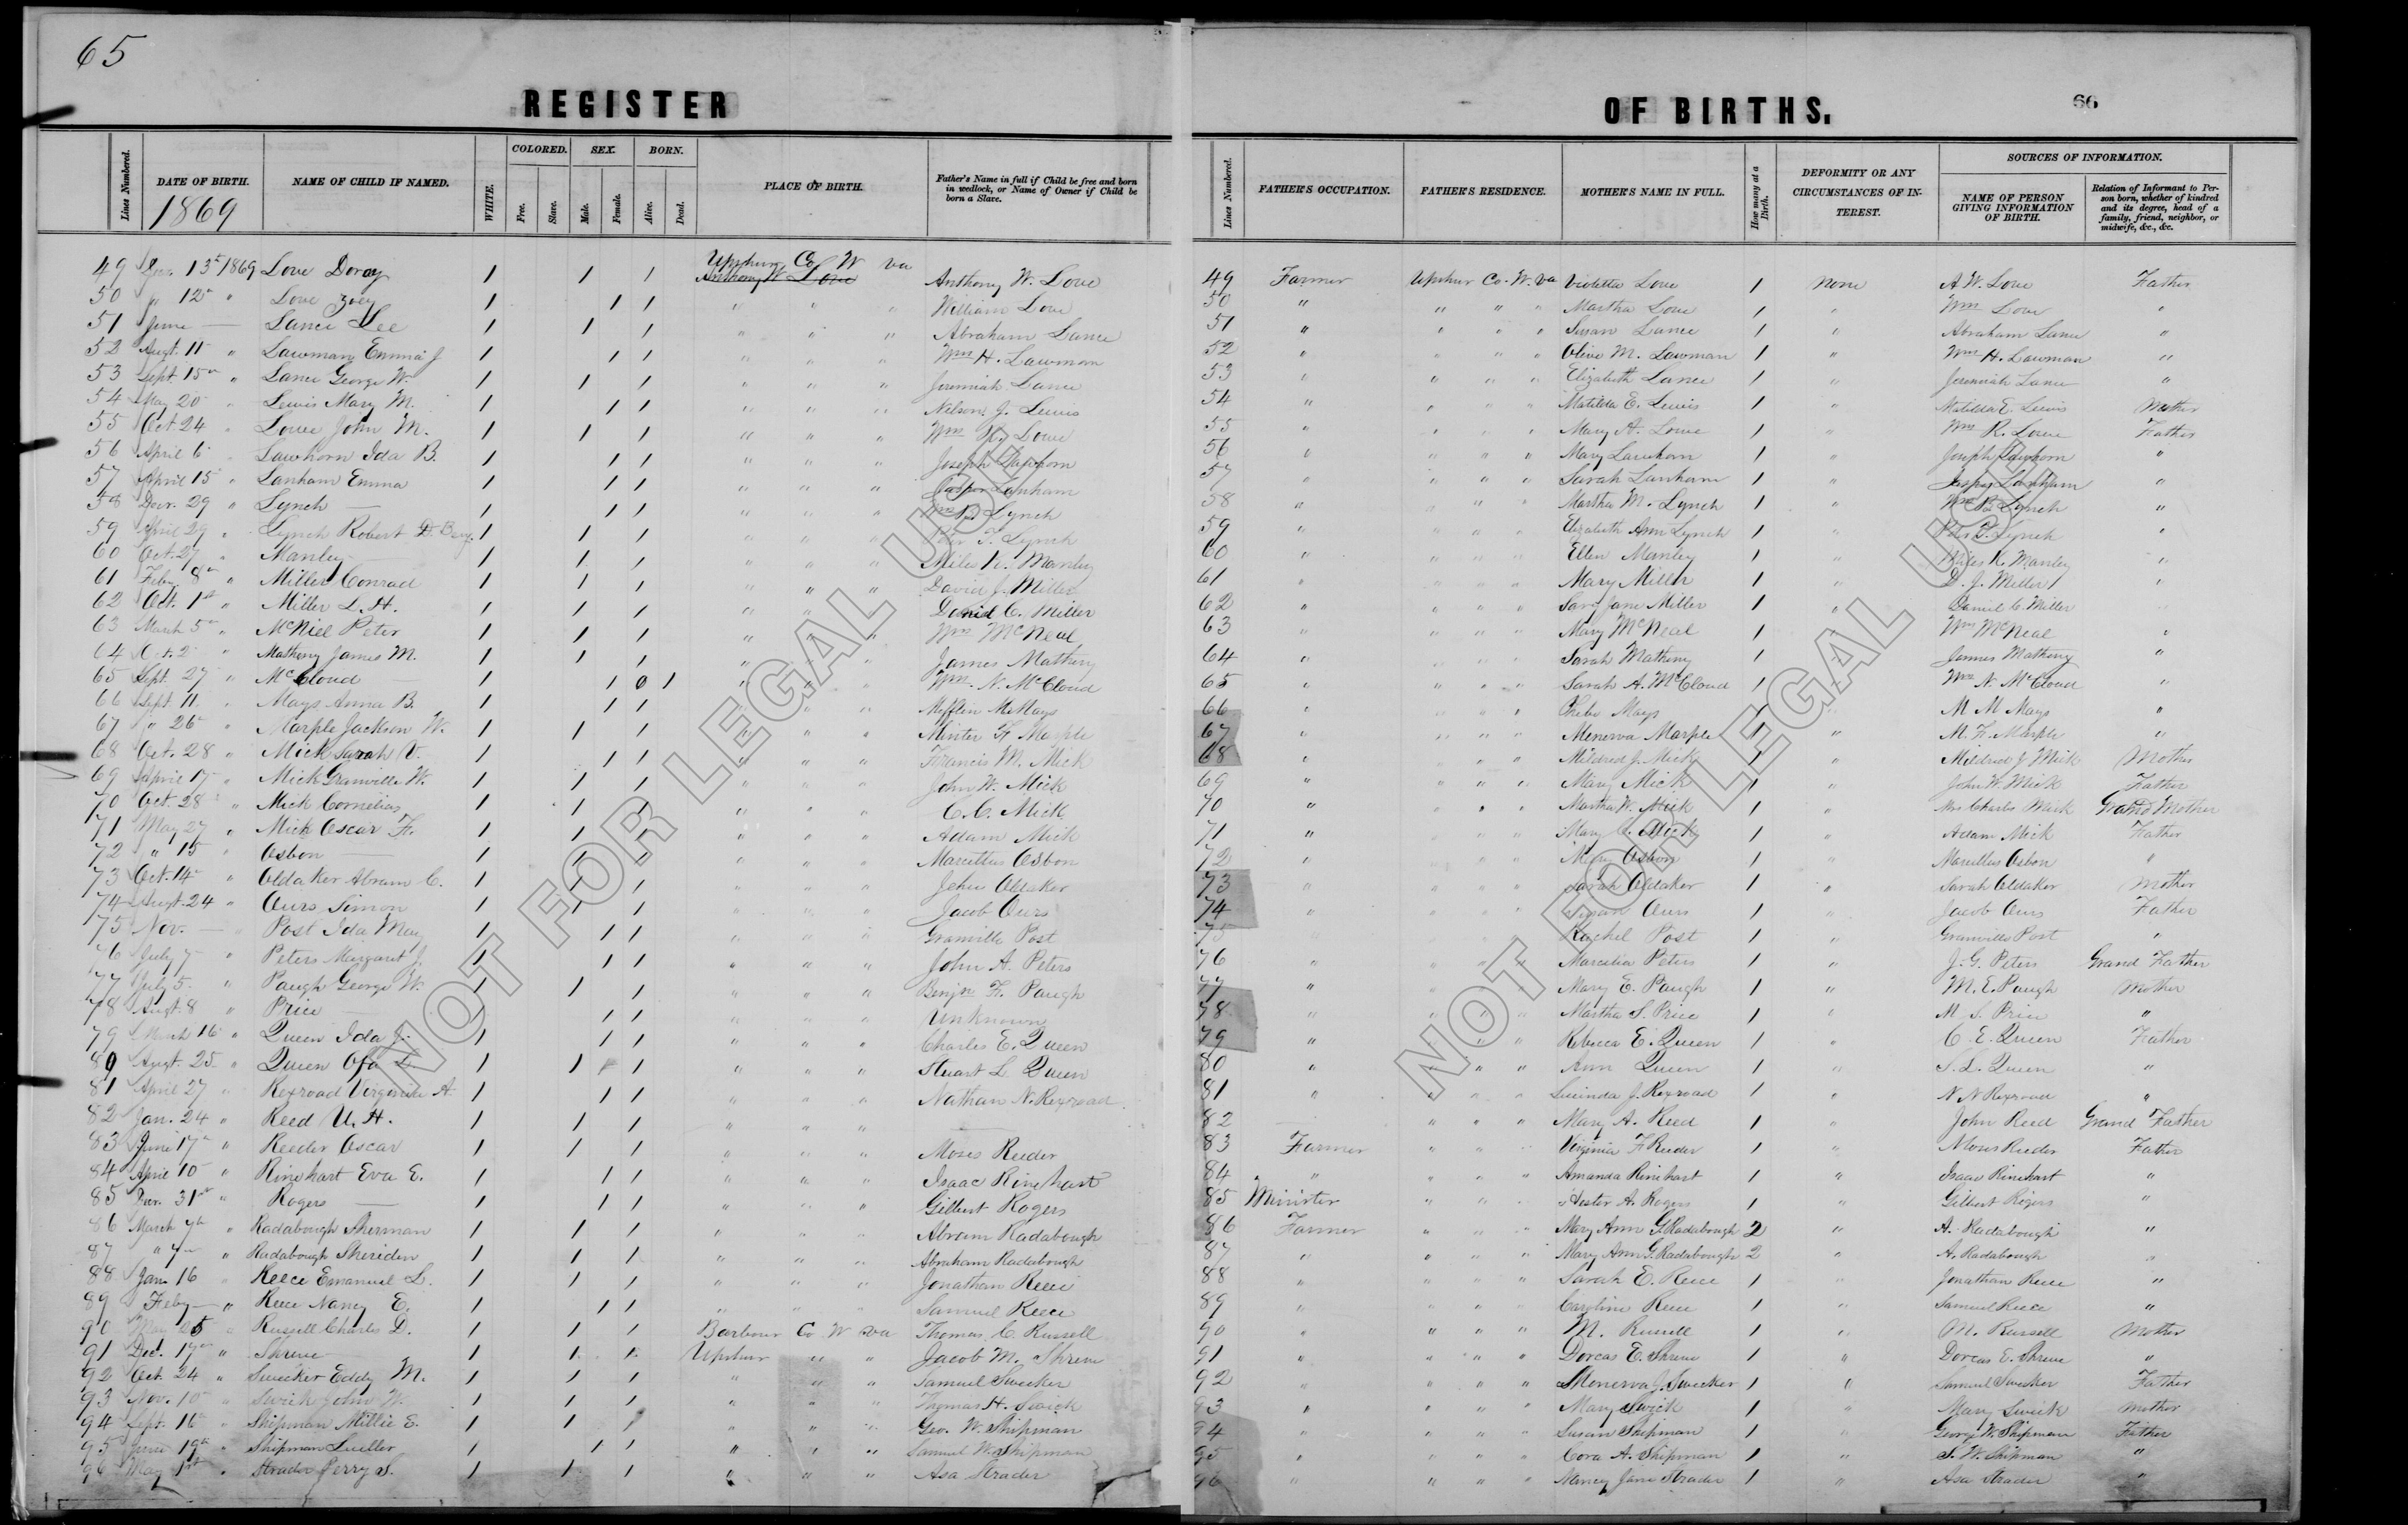 65
REGISTER
OF BIRTHS.
66
Lines Numbered. DATE OF BIRTH. NAME OF CHILD IF NAMED. WHITE. COLORED. Free. Slave. SEX. Male. Female. BORN. Alive. Dead. PLACE OF BIRTH. Father's Name in full if Child be free and born in wedlock, or Name of Owner if Child be born a Slave.
1869
Lines Numbered. FATHER'S OCCUPATION. FATHER'S RESIDENCE. MOTHER'S NAME IN FULL. How many at a Birth. DEFORMITY OR ANY CIRCUMSTANCES OF INTEREST. SOURCES OF INFORMATION. NAME OF PERSON GIVING INFORMATION OF BIRTH. Relation of Informant to Person born, whether of kindred and its degree, head of a family, friend, neighbor, or midwife, &c., &c.
49 13 1869 Love Doray 1 1 1 Upshur Co W va Anthony W. Love
50 " 12 " Love Zoey 1 1 1 " " " William Love
51 June — Lance Lee 1 1 1 " " " Abraham Lance
52 Augt. 11 " Lawman Emma J 1 1 1 " " " Wm H. Lawman
53 Sept. 15 " Lance George W. 1 1 1 " " " Jeremiah Lance
54 May 20 " Lewis Mary M. 1 1 1 " " " Nelson J. Lewis
55 Oct 24 " Lowe John M. 1 1 1 " " " Wm R. Lowe
56 April 6 " Lawhorn Ida B. 1 1 1 " " " Joseph Lawhorn
57 April 15 " Lanham Emma 1 1 1 " " " Jasper Lanham
58 29 " Lynch — 1 1 1 " " " Wm Lynch
59 April 29 " Lynch Robert D. 1 1 1 " " " Peter T. Lynch
60 Oct. 27 " Manley 1 1 1 " " " Miles K. Manley
61 Feby. 8 " Miller Conrad 1 1 1 " " " David J. Miller
62 Oct. 1st " Miller L. H. 1 1 1 " " " Daniel C. Miller
63 March 5 " McNiel Peter 1 1 1 " " " Wm McNeal
64 Oct. 2 " Matheny James M. 1 1 1 " " " James Matheny
65 Sept. 27 " McCloud — 1 1 0 1 " " " Wm. N. McCloud
66 Sept. 11 " Mays Anna B. 1 1 1 " " " Mifflin M Mays
67 " 26 " Marple Jackson W. 1 1 1 " " " Minter F. Marple
68 Oct. 28 " Mick Sarah V. 1 1 1 " " " Francis M. Mick
69 April 17 " Mick Granville W. 1 1 1 " " " John W. Mick
70 Oct. 28 " Mick Cornelius 1 1 1 " " C. C. Mick
71 May 27 " Mick Oscar F. 1 1 1 " " " Adam Mick
72 " 15 " Osbon — 1 1 1 " " " Marcellus Osbon
73 Oct. 14 " Oldaker Abram C. 1 1 1 " " " John Oldaker
74 Augt. 24 " Ours Simon 1 1 1 " " " Jacob Ours
75 Nov. — " Post Ida May 1 1 1 " " " Granville Post
76 July 7 " Peters Margaret J. 1 1 1 " " " John A. Peters
77 July 5 " Paugh George W. 1 1 1 " " " Benjn F. Paugh
78 Augt. 8 " Price — 1 1 1 " " " Unknown
79 March 16 " Queen Ida J. 1 1 1 " " " Charles E. Queen
80 Augt. 25 " Queen 1 1 1 " " " Stuart L Queen
81 April 27 " Rexroad Virginia A. 1 1 1 " " " Nathan N. Rexroad
82 Jan. 24 " Reed U. H. 1 1 1 " " " —
83 June 17 " Reeder Oscar 1 1 1 " " " Moses Reeder
84 April 10 " Rinehart Eva E. 1 1 1 " " " Isaac Rinehart
85 31st " Rogers — 1 1 1 " " " Gilbert Rogers
86 March 7th " Radabough Sherman 1 1 1 " " " Abram Radabough
87 " 7 " Radabough Sheridan 1 1 1 " " " Abraham Radabough
88 Jan. 16 " Reece Emanuel L. 1 1 1 " " " Jonathan Reece
89 Feby — " Reece Nancy E. 1 1 1 " " " Samuel Reece
90 May " Russell Charles D. 1 1 1 Barbour Co W va Thomas C. Russell
91 Dec. 17 " Shreve — 1 1 1 Upshur " " Jacob M. Shreve
92 Oct 24 " Swecker Eddy M. 1 1 1 " " " Samuel Swecker
93 Nov. 10 " Swick John W. 1 1 1 " " " Thomas H. Swick
94 Sept. 16 " Shipman Millie E. 1 1 1 " " " Geo. W. Shipman
95 June 19th " Shipman Lueller 1 1 1 " " " Samuel W. Shipman
96 May 1st " Strader Perry S. 1 1 1 " " " Asa Strader
49 Farmer Upshur Co. W. va Violetta Love 1 None A. W. Love Father
50 " " " " Martha Love 1 " Wm Love "
51 " " " " Susan Lance 1 " Abraham Lance "
52 " " " " Olive M. Lawman 1 " Wm H. Lawman "
53 " " " " Elizabeth Lance 1 " Jeremiah Lance "
54 " " " " Matilda E. Lewis 1 " Matilda E. Lewis Mother
55 " " " " Mary A. Lowe 1 " Wm R. Lowe Father
56 " " " " Mary Lawhorn 1 " Joseph Lawhorn "
57 " " " " Sarah Lanham 1 " Jasper Lanham "
58 " " " " Martha M. Lynch 1 " Wm Lynch "
59 " " " " Elizabeth Ann Lynch 1 " Peter T. Lynch "
60 " " " " Ellen Manley 1 " Miles K. Manley "
61 " " " " Mary Miller 1 " D. J. Miller "
62 " " " " Jane Miller 1 " Daniel C. Miller "
63 " " " " Mary McNeal 1 " Wm McNeal "
64 " " " " Sarah Matheny 1 " James Matheny "
65 " " " " Sarah A. McCloud 1 " Wm N. McCloud "
66 " " " " Phebe Mays 1 " M M Mays "
67 " " " " Minerva Marple 1 " M. F. Marple "
68 " " " " Mildred J. Mick 1 " Mildred J Mick Mother
69 " " " " Mary Mick 1 " John W. Mick Father
70 " " " " Martha W. Mick 1 " Mrs Charles Mick Grand Mother
71 " " " " Mary Mick 1 " Adam Mick Father
72 " " " " Mary Osbon 1 " Marcellus Osbon "
73 " " " " Sarah Oldaker 1 " Sarah Oldaker Mother
74 " " " " Susan Ours 1 " Jacob Ours Father
75 " " " " Rachel Post 1 " Granville Post "
76 " " " " Marcelia Peters 1 " J. G. Peters Grand Father
77 " " " " Mary E. Paugh 1 " M. E. Paugh Mother
78 " " " " Martha S. Price 1 " M. S. Price "
79 " " " " Rebecca E. Queen 1 " C. E. Queen Father
80 " " " " Ann Queen 1 " S. L. Queen "
81 " " " " Lucinda J. Rexroad 1 " N N Rexroad "
82 — " " " Mary A. Reed 1 " John Reed Grand Father
83 Farmer " " " Virginia F Reeder 1 " Moses Reeder Father
84 " " " " Amanda Rinehart 1 " Isaac Rinehart "
85 Minister " " " Hester A. Rogers 1 " Gilbert Rogers "
86 Farmer " " " Mary Ann G. Radabough 2 " A. Radabough "
87 " " " " Mary Ann G. Radabough 2 " A. Radabough "
88 " " " " Sarah E. Reece 1 " Jonathan Reece "
89 " " " " Caroline Reece 1 " Samuel Reece "
90 " " " " M. Russell 1 " M. Russell Mother
91 " " " " Dorcas E. Shreve 1 " Dorcas E. Shreve "
92 " " " " Menerva J. Swecker 1 " Samuel Swecker Father
93 " " " " Mary Swick 1 " Mary Swick Mother
94 " " " " Susan Shipman 1 " George W. Shipman Father
95 " " " " Cora A. Shipman 1 " S. W. Shipman "
96 " " " " Nancy Jane Strader 1 " Asa Strader "
NOT FOR LEGAL USE
NOT FOR LEGAL USE